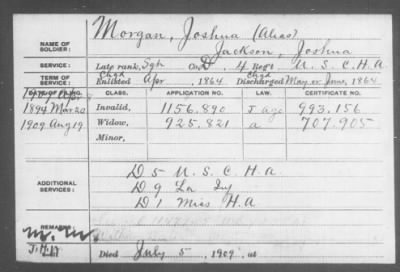 Morgan, Joshua (Alias)
NAME OF SOLDIER:
Jackson, Joshua
SERVICE:
Late rank, Sgt Co. D, 4 Regt U. S. C. H. A.
TERM OF SERVICE:
Chgd
Enlisted Apr, 1864
Chgd
Discharged May or June, 1864
DATE OF FILING. CLASS. APPLICATION NO. LAW. CERTIFICATE NO.
1894 Mar 20 Invalid, 1156.890 J age 993.156
1909 Aug 19 Widow, 925.821 a 707.905
Minor,
ADDITIONAL SERVICES:
D 5 U. S. C. H. A.
D 9 La Inf
D 1 Miss H. A.
REMARKS:
Died July 5, 1909, at